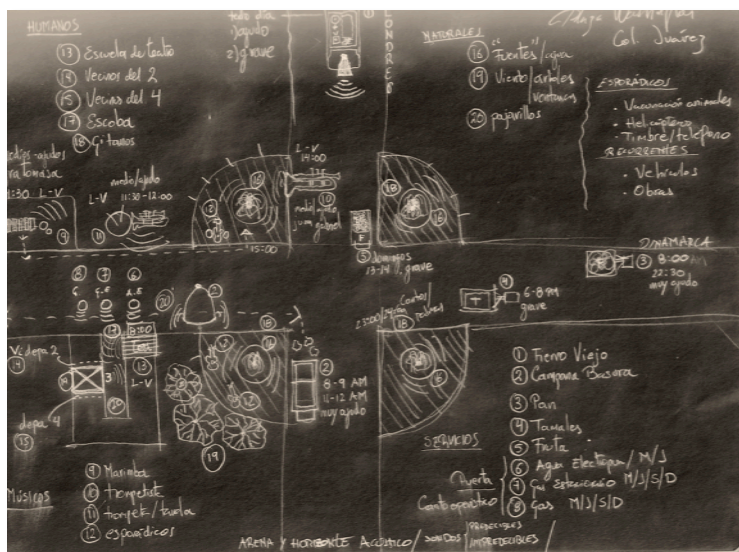 HUMANOS
13 Escuela de teatro
14 Vecinos del 2
15 Vecinos del 4
17 Escoba
18 Gitanos
todo día
1) agudo
2) grave
LONDRES
NATURALES
16 "Fuentes"/agua
19 Viento/árboles
ventanas
20 pajarillos
Col. Juárez
ESPORÁDICOS
- Vacunación animales
- Helicóptero
- Timbre/teléfono
RECURRENTES
- Vehículos
- Obras
medios-agudos
1:30 L-V
medio/agudo
L-V 11:30-12:00
L-V
14:00
15:00
5 domingos
13-14 h. grave
DINAMARCA
3 8:00 AM
22:30
muy agudo
4
6-8 PM
grave
8 7 6
G. G.E A.E
20
18
8:00
13
L-V
depa 2
14
depa 4
15
19
2
8-9 AM
11-12 AM
muy agudo
SERVICIOS
1 Fierro Viejo
2 Campana Basura
3 Pan
4 Tamales
5 Fruta
6 Agua Electropura / M/J
7 Gas Estacionario M/J/S/D
8 Gas M/J/S/D
Puerta
Músicos
9 Marimba
10 trompetista
11 trompeta/tarola
12 esporádicos
ARENA Y HORIZONTE ACÚSTICO / SONIDOS / PREDECIBLES
/ IMPREDECIBLES /